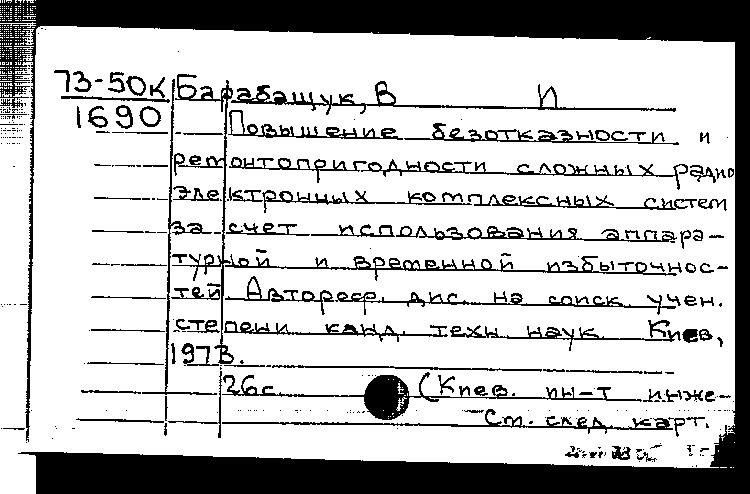 73-50к Барабащук, В И
1690
Повышение безотказности и
ремонтопригодности сложных радио
электронных комплексных систем
за счет использования аппара-
турной и временной избыточнос-
тей. Автореф. дис. на соиск учен.
степени канд. техн наук Киев,
1973.
26с. (Киев. ин-т инже-
См. след. карт.